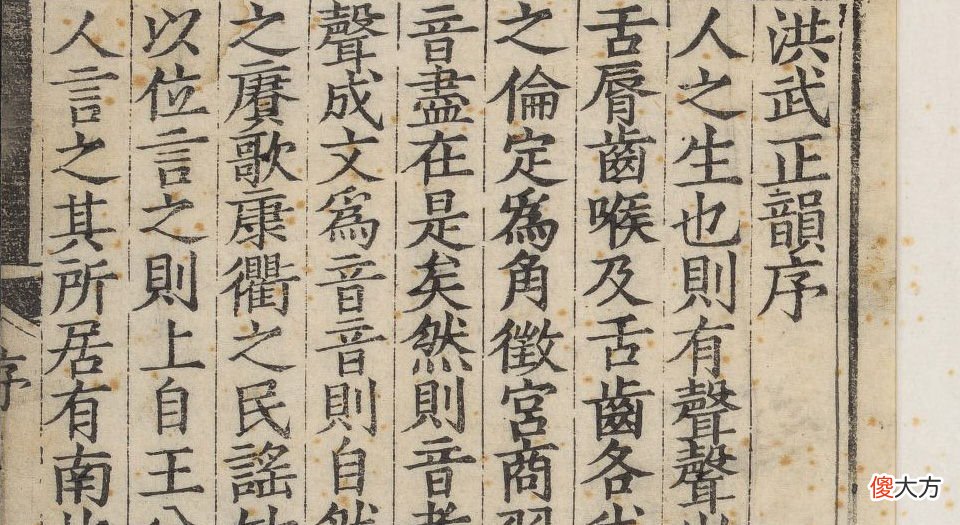 洪武正韻序
人之生也則有聲聲
舌脣齒喉及舌齒各
之倫定爲角徵宮商
音盡在是矣然則音者
聲成文爲音音則自然
之賡歌康衢之民謠
以位言之則上自王公
人言之其所居有南
序
傻大方